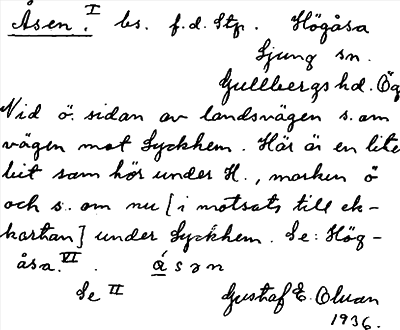 Åsen. I bs. f.d. Stp. Högåsa
Ljung sn.
Gullbergs hd. Ög
Vid ö. sidan av landsvägen s. om
vägen mot Lyckhem. Här är en lite
bit som hör under H., marken ö
och s. om nu [i motsats till ek-
kartan] under Lyckhem. Se: Hög-
åsa. VI . åsən
Se II Gustaf E. Olvan
1936.